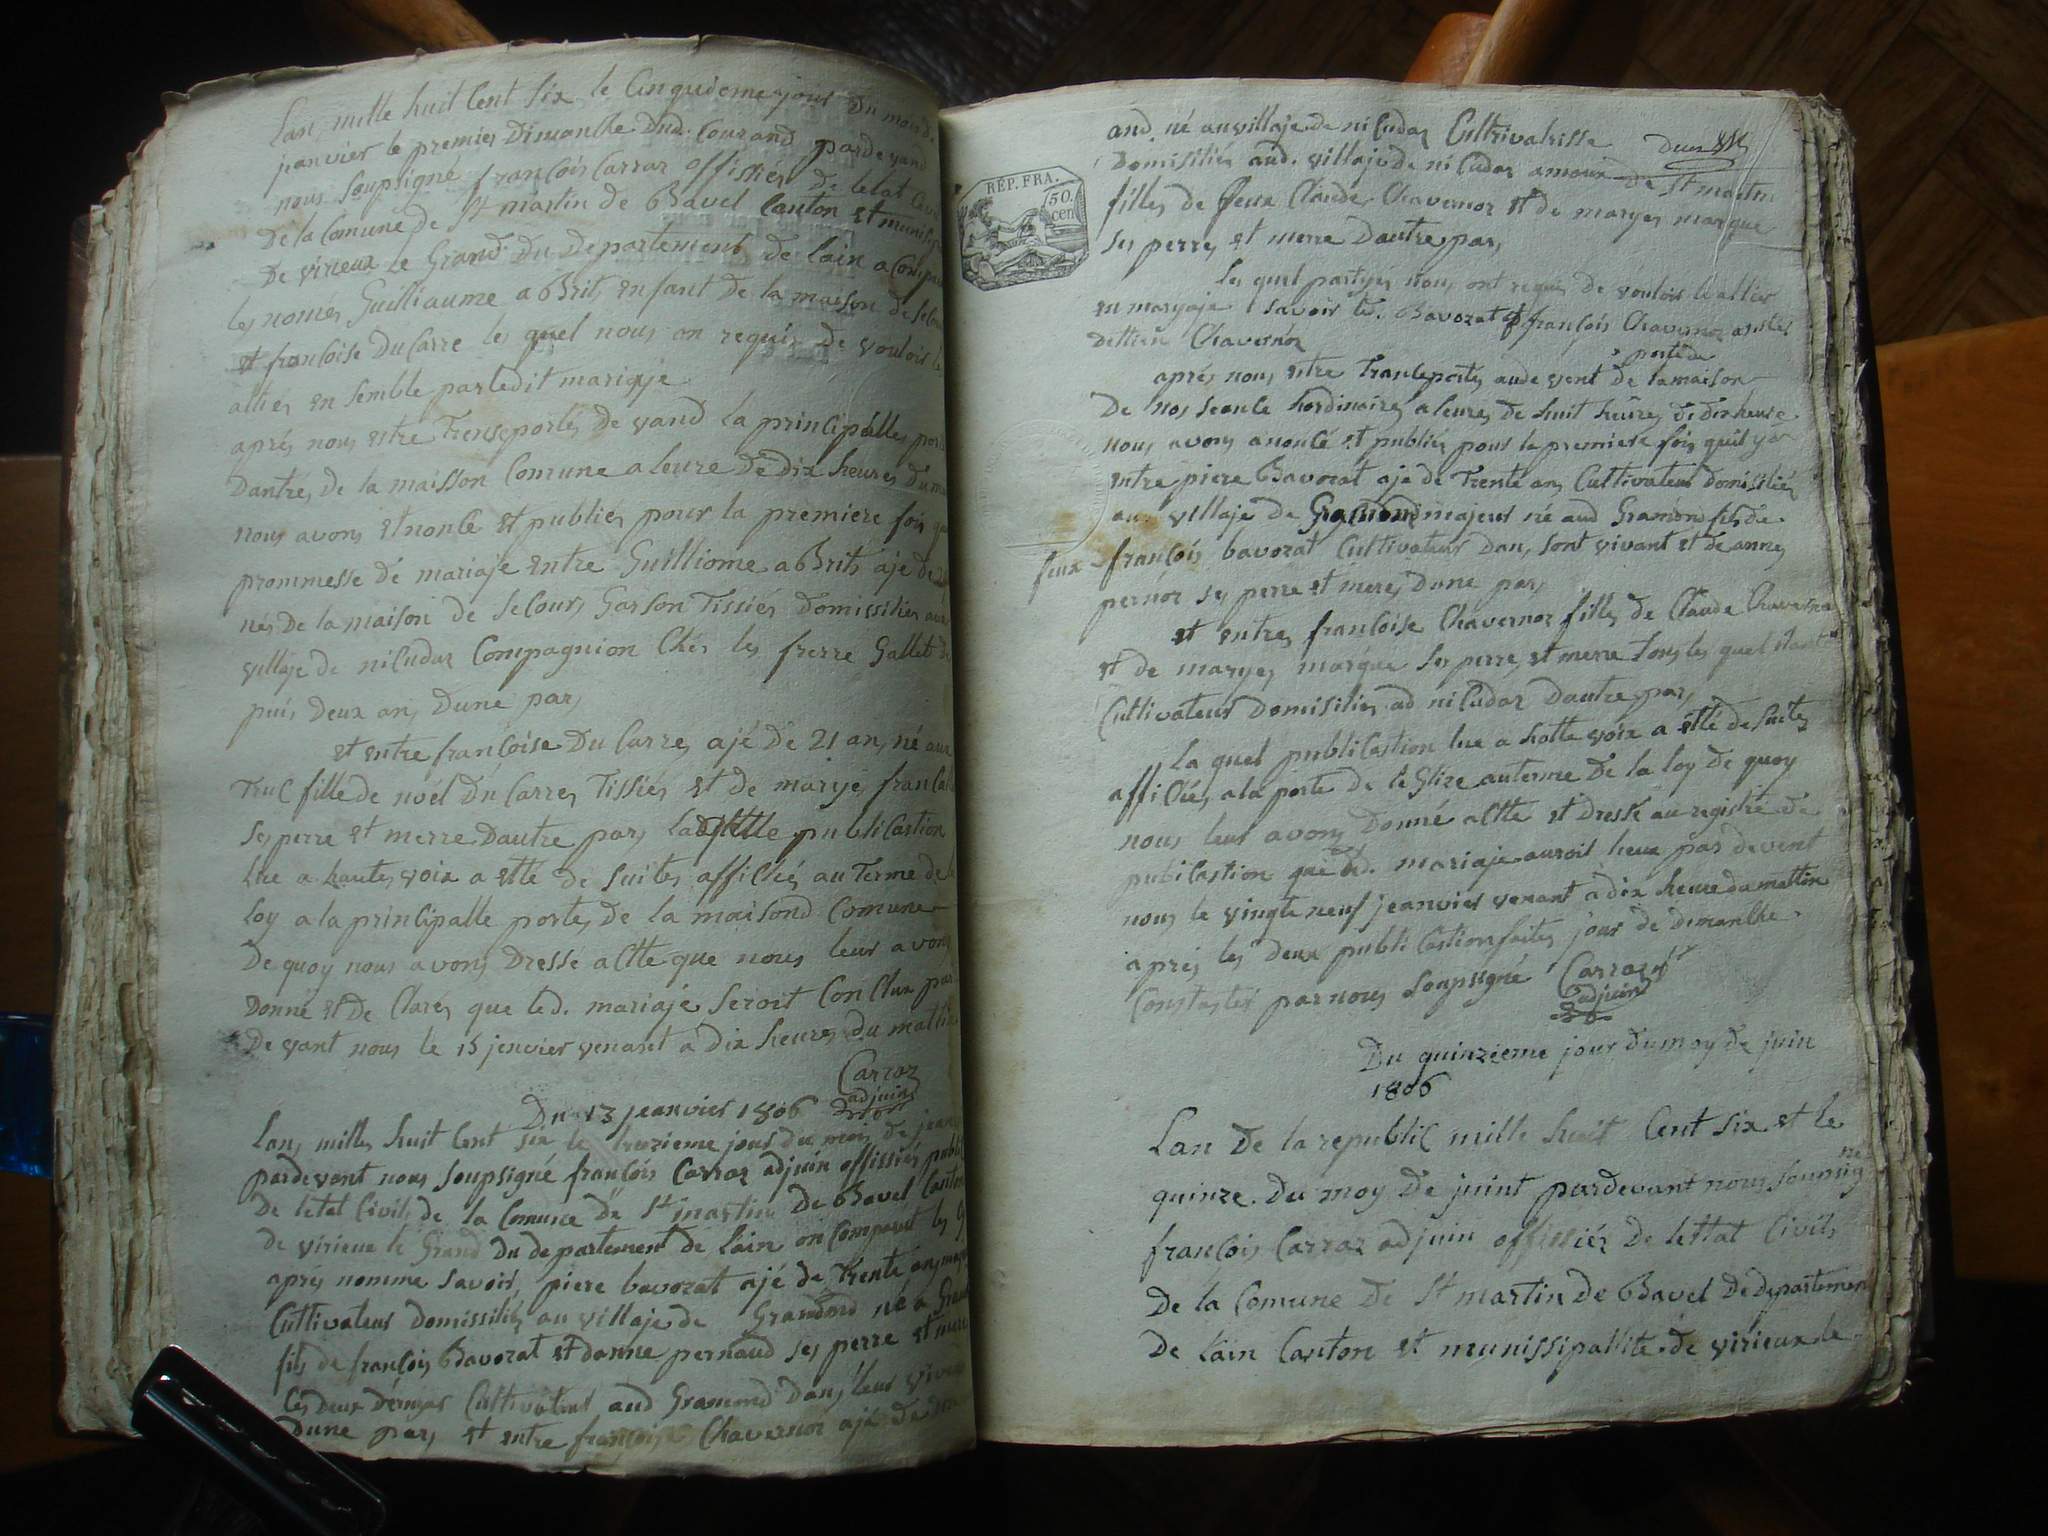 Lan mille huit Cent Six le Cinquieme jour Du mois de
jeanvier le premier Dimanche Dud. Courand pardevand
nous Soupsigné françois Carraz offissiér De letat Civil
De la Comune de St martin de Bavel Canton et munisip
De virieux le Grand Du Departement de lain a Compa
les només Guilliaume a Brits enfant de la maison de Secour
et francoise DuCarre les quel nous on requis De vouloir le
alliér en Semble par ledit mariaje
aprés nous estre Trensportés de vand la principalle porte
Dantrés de la maisson Comune a leure de Dix heures Du ma
nous avons etnonce et publiér pour la premiere fois que
prommesse de mariaje entre Guilliome a Brits aje de
nés De la maison de Secours Garson Tissiér Domissiliér aux
villaje de niCudaz Compagnion Chés les frerre Gallet de
puis Deux an, Dune par,
et entre francoise Du Carre, ajé de 21 an, né aux
Truc fille de noél Du Carre, Tissiér et de marye fran
Ses perre et merre Dautre par, publicastion
lue a haute, voix a ette de Suites affichés au Terme de la
loy a la principalle porte, de la maisond Comune
De quoy nous avons Dressé actte que nous leur avons
Donné et De Clarés que led. mariajé Seroit Conclux par
De vant nous le 15 jenvier venant a Dix heures du mattin
Carraz
adjuin
Du 13 jeanvier 1806
Lan, mille, huit Cent Six le treizieme jour du mois de jeanv
pardevant nous Soupsigné françois Carraz adjuin offissiér publi
De letat Civil, de la Comune De St martin De Bavel Canton
de virieux le Grand Du departement de lain on Comparut les Cy
aprés nomme Savoir, piere bavozat ajé de Trente an, majeur
Cultivateur Domissiliér au villaje de Gramond né a Gram
fils de françois Bavozat et Danne pernaud ses perre et merre
les deux Cultivateur aud Gramond Dans leur vivand
Dune par, et entre françoise Chavernoz ajé de
and, né au villaje de niCudaz Cultivatrisse
Domisiliér aud. villaje de niCudaz de St martin
filles de feux Claude, Chavernoz et de marye, marque
Ses perre, et merre Dautre par,
Les quel partyes nous ont requis de vouloir le allier
en maryaje Savoir led. Bavozat et françois Chavernoz
Chavernoz
aprés nous estre Transportés aude vent de la maison
porte de
De nos Seance hordinaires a leures de huit heures
nous avons anoncé et publiér pour la premiere fois quil y a
entre piere Bavozat ajé de Trente an, Cultivateur Domisiliér
au villaje de Gramond majeur né aud Gramond fils de
feux françois bavozat Cultivateur Dan, sont vivant et de anne
pernoz Ses perre et mere, Dune par,
et entre, françoise Chavernoz filles de Claude Chavernoz
et de marye, marque Ses perre, et merre Tous les quel
Cultivateur Domisiliér ad niCudaz Dautre par,
La quel publicastion lue a hotte voix a etté de Suites
affichés, a la porte de leGlize auterme De la loy de quoy
nous leur avons Donné actte et Dressé au registre de
publicastion que led. mariaje auroit lieux par devent
nous le vingte neuf jeanvier venant a dix heure du mattin
aprés les deux publicastion faites jour de dimanche.
Constaster par nous Soupsigné Carraz
adjuin
Du quinzieme jour Dumoy De juin
1806
Lan de la republic mille huit Cent six et le
quinze. Du moy De juint pardevant nous Sousig
né
françois Carraz adjuin offissiér De lettat Civil,
De la Comune De St martin De Bavel De departemen
De lain Canton et munissipallite de virieux le
RÉP. FRA.
50.
cen